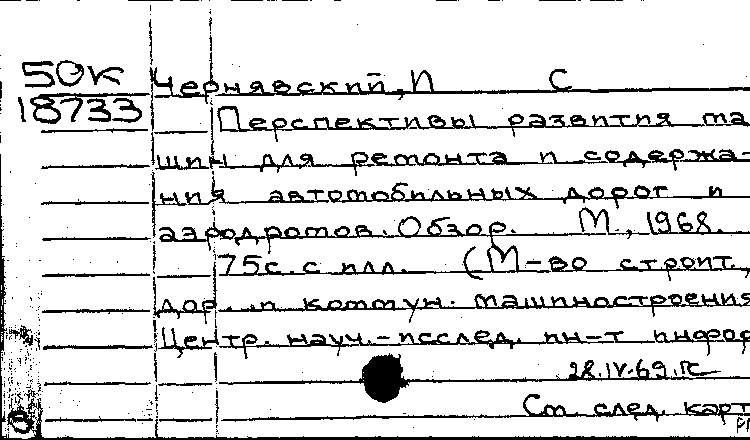 50К
18733
Чернявский, П С
Перспективы развития ма-
шин для ремонта и содержа-
ния автомобильных дорог и
аэродромов. Обзор. М., 1968.
75с. с илл. (М-во строит.,
дор. и коммун. машиностроения
Центр. науч.-исслед. ин-т инфор
28.IV.69.
См. след. карт